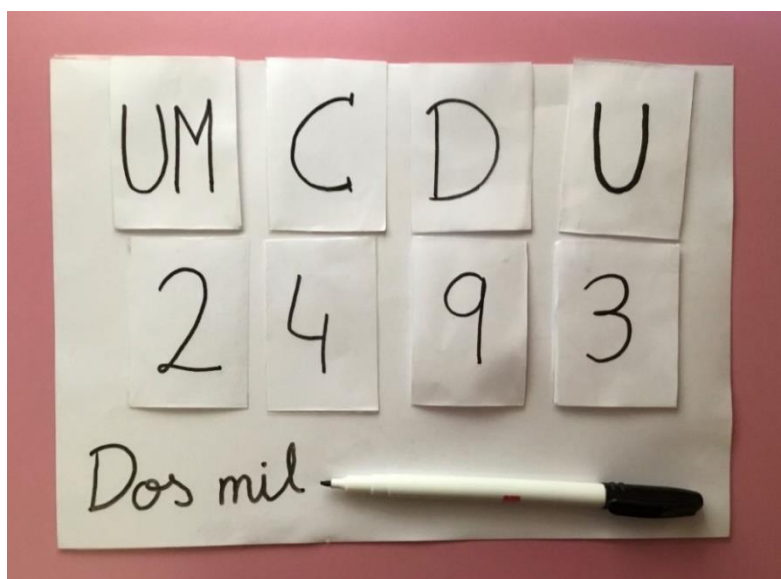 UM C D U
2 4 9 3
Dos mil